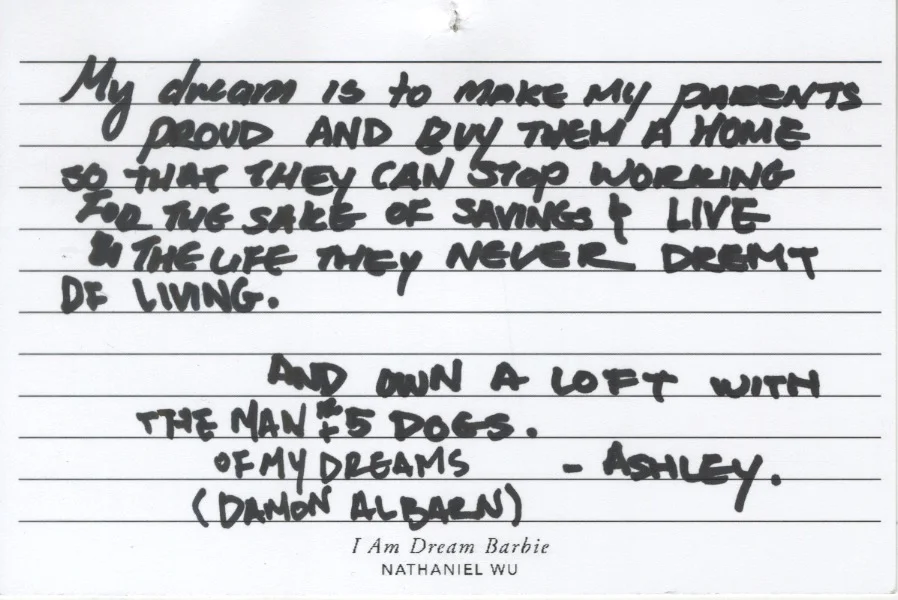 My dream is to MAKE MY PARENTS
PROUD AND BUY THEM A HOME
SO THAT THEY CAN STOP WORKING
FOR THE SAKE OF SAVINGS & LIVE
IN THE LIFE THEY NEVER DREMT
OF LIVING.
AND OWN A LOFT WITH
THE MAN * + 5 DOGS.
OF MY DREAMS - ASHLEY.
(DAMON ALBARN)
I Am Dream Barbie
NATHANIEL WU